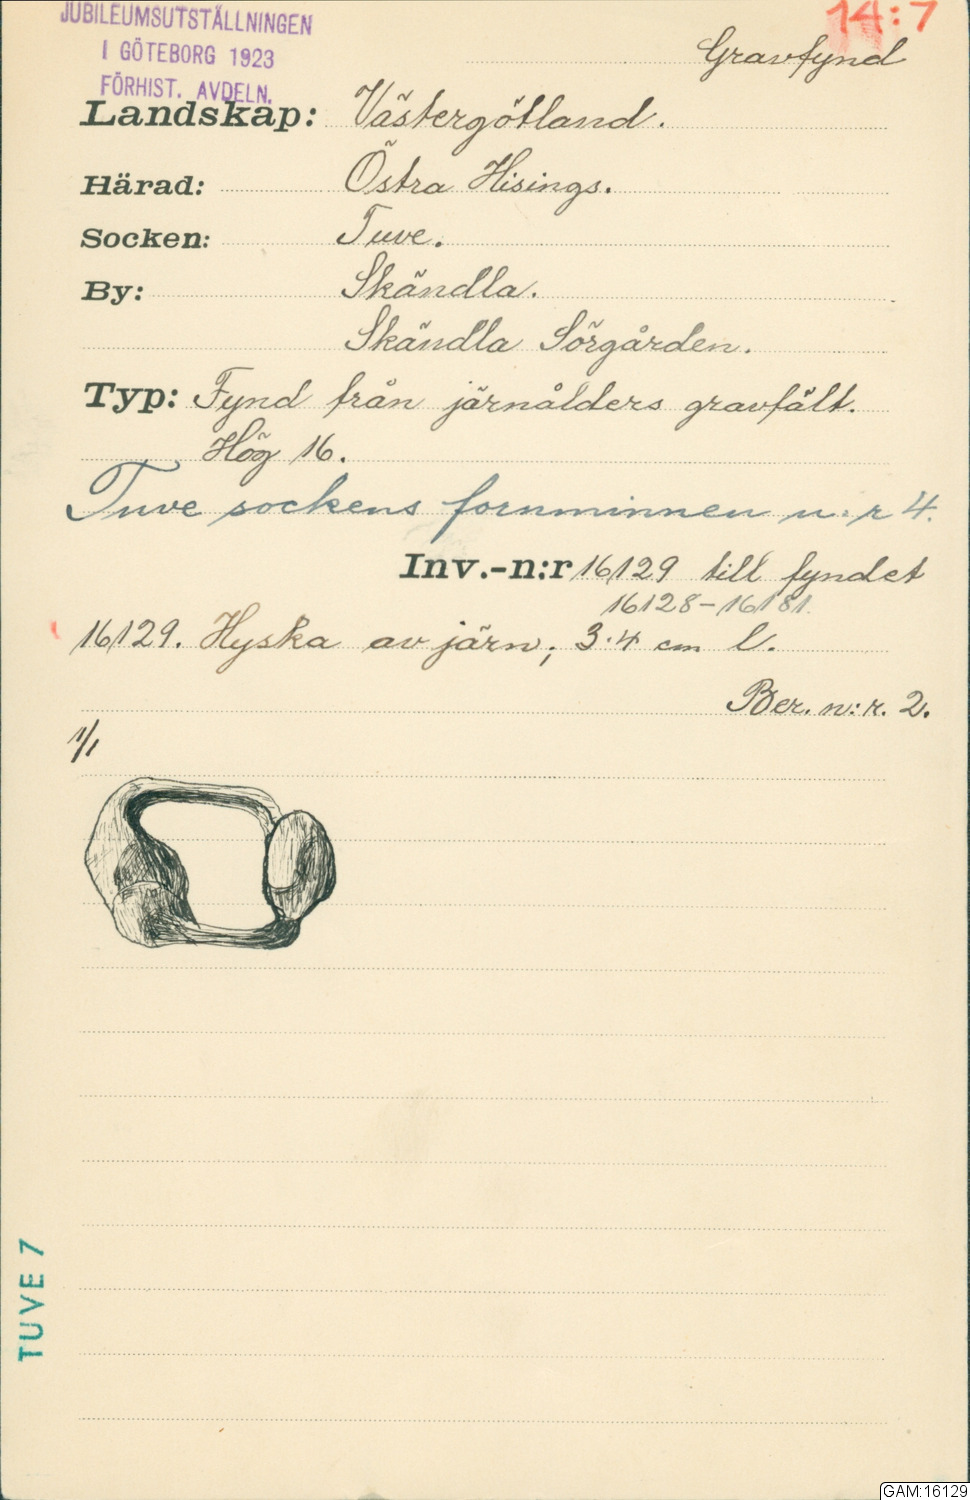 JUBILEUMSUTSTÄLLNINGEN
I GÖTEBORG 1923
FÖRHIST. AVDELN.
14:7
Gravfynd
Landskap: Västergötland.
Härad: Östra Hisings.
Socken: Tuve.
By: Skändla.
Skändla Sörgården.
Typ: Fynd från järnålders gravfält.
Hög 16.
Tuve sockens fornminnen n:r 4.
Inv.-n:r 16129 till fyndet
16128-16181.
16129. Hyska av järn; 3.4 cm l.
Ber. n:r. 2.
1/1
TUVE 7
GAM:16129